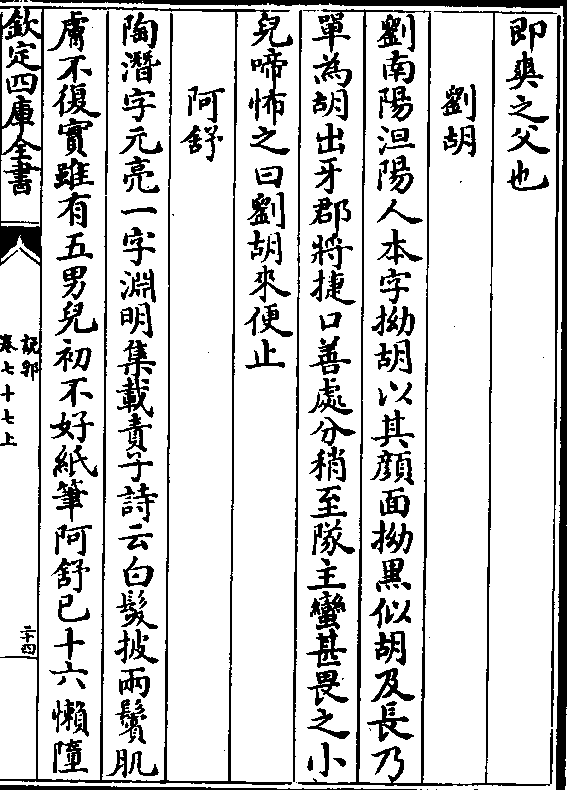 即奭之父也
劉胡
劉南陽泹陽人本字拗胡以其顔面拗黒似胡及長乃
單為胡出牙郡將捷口善處分稍至隊主蠻甚畏之小
兒啼怖之曰劉胡來便止
阿舒
陶潛字元亮一字淵明集載責子詩云白髮披兩鬢肌
膚不復實雖有五男兒初不好紙筆阿舒已十六懶隨
欽定四庫全書
說郛
卷七十七上
二十四